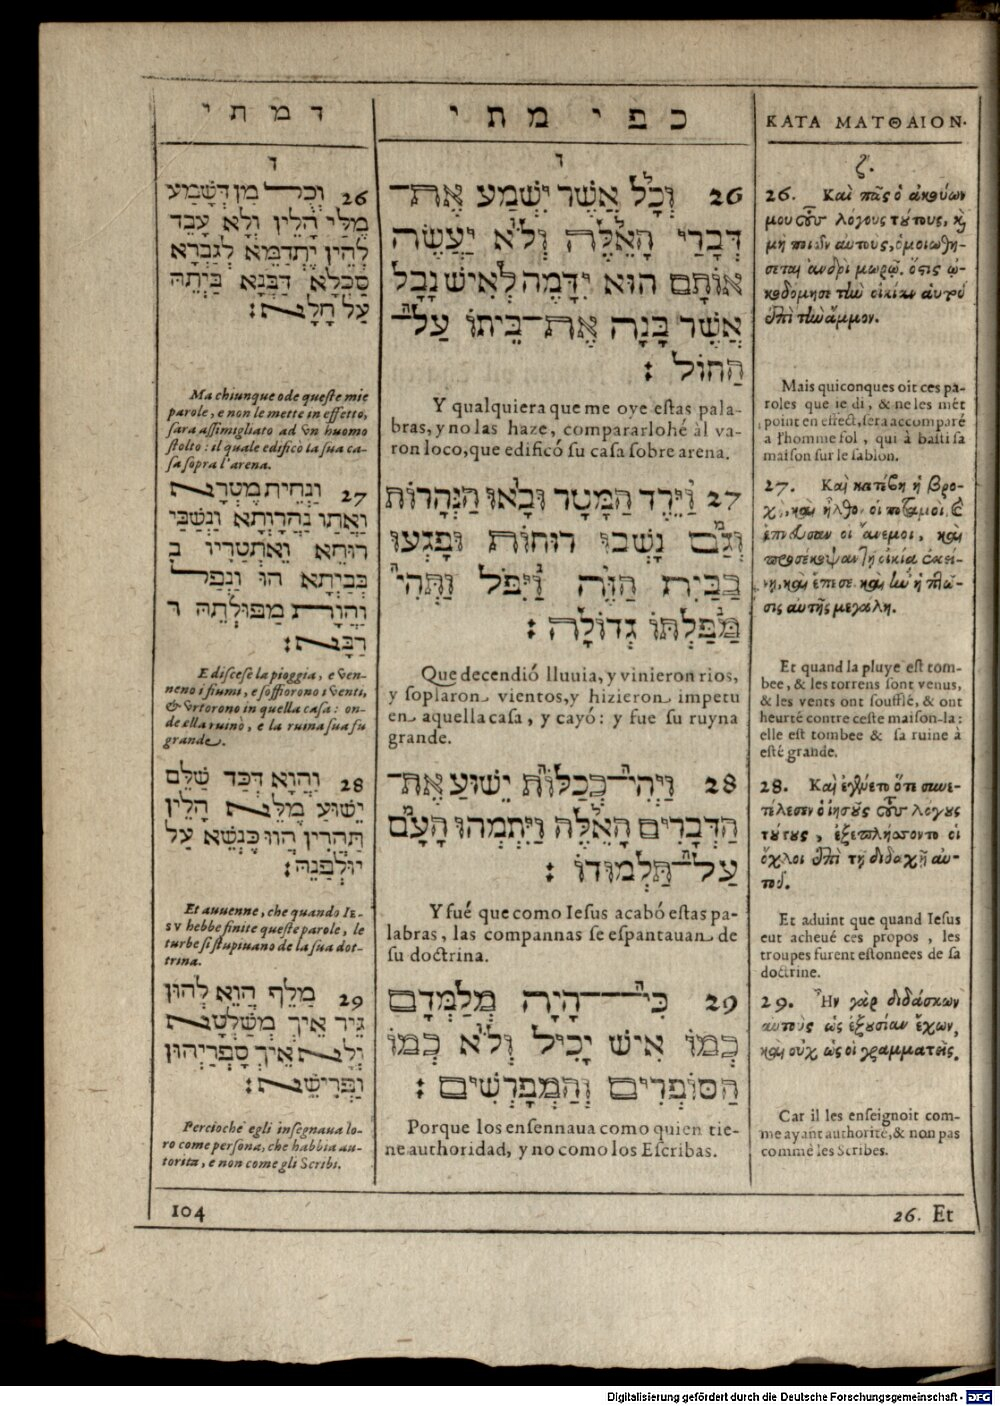 ד מ ת י
ו
26 וְכָל מִן דְּשָׁמַע
מִלַּי הָלֵין וְלָא עָבֵד
לְהֵין יֶתְדַּמֵּא לְגַבְרָא
סַכְלָא דַּבְנָא בַּיְתֵהּ
עַל חָלָא:
Ma chiunque ode queste mie
parole, e non le mette in effetto,
sara assimigliato ad vn huomo
stolto: il quale edificò la sua ca-
sa sopra l'arena.
27 וַנְחֵית מֶטְרָא
וַאֲתַו נַהֲרָוָתָא וַנְשַׁבִי
רוּחֵא וֵאתְטַרִיו ב
בְּבַיְתָא הוּ וַנְפַל
וַהֲוָת מַפּוּלְתֵּהּ ר
רַבָּא:
E discese la pioggia, e ven-
neno i fiumi, e soffiorono i venti,
& vrtorono in quella casa: on-
de ella ruinò, e la ruina sua fu
grande.
28 וַהֲוָא דְּכַד שַׁלֵּם
יֵשׁוּעַ מִלֵּא הָלֵין
תַּהִרִין הֲווֹ כֶּנְשֵׁא עַל
יוּלְפָנֵהּ:
Et auuenne, che quando IE-
SV hebbe finite queste parole, le
turbe si stupiuano de la sua dot-
trina.
29 מַלֶּף הֲוֵא לְהוּן
גֵּיר אֵיךְ מְשַׁלְּטָא
וְלָא אֵיךְ סָפְרַיְהוּן
וַפְרִישֵׁא:
Percioche egli insegnaua lo-
ro come persona, che habbia au-
torita, e non come gli Scribi.
כ פ י מ ת י
ו
26 וְכָל אֲשֶׁר יִשְׁמַע אֶת־
דְּבָרַי הָאֵלֶּה וְלֹא יַעֲשֶׂה
אוֹתָם הוּא יִדָּמֶה לְאִישׁ נָבָל
אֲשֶׁר בָּנָה אֶת־בֵּיתוֹ עַל־
הַחוֹל:
Y qualquiera que me oye estas pala-
bras, y no las haze, compararlohé àl va-
ron loco, que edificó su casa sobre arena.
27 וַיֵּרֶד הַמָּטָר וּבָאוּ הַנְּהָרוֹת
וְגַם נָשְׁבוּ רוּחוֹת וּפָגְעוּ
בַּבַּיִת הַזֶּה וַיִּפֹּל וַתְּהִי
מַּפַּלְתּוֹ גְדוֹלָה:
Que decendió lluuia, y vinieron rios,
y soplaron vientos, y hizieron impetu
en aquella casa, y cayó: y fue su ruyna
grande.
28 וַיְהִי־כְּכַלּוֹת יֵשׁוּעַ אֶת־
הַדְּבָרִים הָאֵלֶּה וַיִּתְמְהוּ הָעָם
עַל־תַּלְמוּדוֹ:
Y fué que como Iesus acabó estas pa-
labras, las compannas se espantauan de
su doctrina.
29 כִּי־הָיָה מְלַמְּדָם
כְּמוֹ אִישׁ יָכִיל וְלֹא כְּמוֹ
הַסּוֹפְרִים וְהַמְּפָרְשִׁים:
Porque los ensennaua como quien tie-
ne authoridad, y no como los Escribas.
ΚΑΤΑ ΜΑΤΘΑΙΟΝ.
ζ.
26. Καὶ πᾶς ὁ ἀκούων
μου τοὺς λόγους τούτους, καὶ
μὴ ποιῶν αὐτοὺς, ὁμοιωθή-
σεται ἀνδρὶ μωρῷ, ὅστις ᾠ-
κοδόμησε τὴν οἰκίαν αὐτοῦ
ἐπὶ τὴν ἄμμον.
Mais quiconques oit ces pa-
roles que ie di, & ne les met
point en effect, sera accomparé
a l'homme fol, qui à basti sa
maison sur le sablon.
27. Καὶ κατέβη ἡ βρο-
χὴ, καὶ ἦλθον οἱ ποταμοὶ, καὶ
ἔπνευσαν οἱ ἄνεμοι, καὶ
προσέκοψαν τῇ οἰκίᾳ ἐκεί-
νῃ, καὶ ἔπεσε. καὶ ἦν ἡ πτῶ-
σις αὐτῆς μεγάλη.
Et quand la pluye est tom-
bee, & les torrens sont venus,
& les vents ont soufflé, & ont
heurté contre ceste maison-la:
elle est tombee & sa ruine à
esté grande.
28. Καὶ ἐγένετο ὅτε συνε-
τέλεσεν ὁ ἰησοῦς τοὺς λόγους
τούτους, ἐξεπλήσσοντο οἱ
ὄχλοι ἐπὶ τῇ διδαχῇ αὐ-
τοῦ.
Et aduint que quand Iesus
eut acheué ces propos, les
troupes furent estonnees de sa
doctrine.
29. Ἦν γὰρ διδάσκων
αὐτοὺς ὡς ἐξουσίαν ἔχων,
καὶ οὐχ ὡς οἱ γραμματεῖς.
Car il les enseignoit com-
me ayant authorité, & non pas
comme les Scribes.
104
26. Et
Digitalisierung gefördert durch die Deutsche Forschungsgemeinschaft - DFG